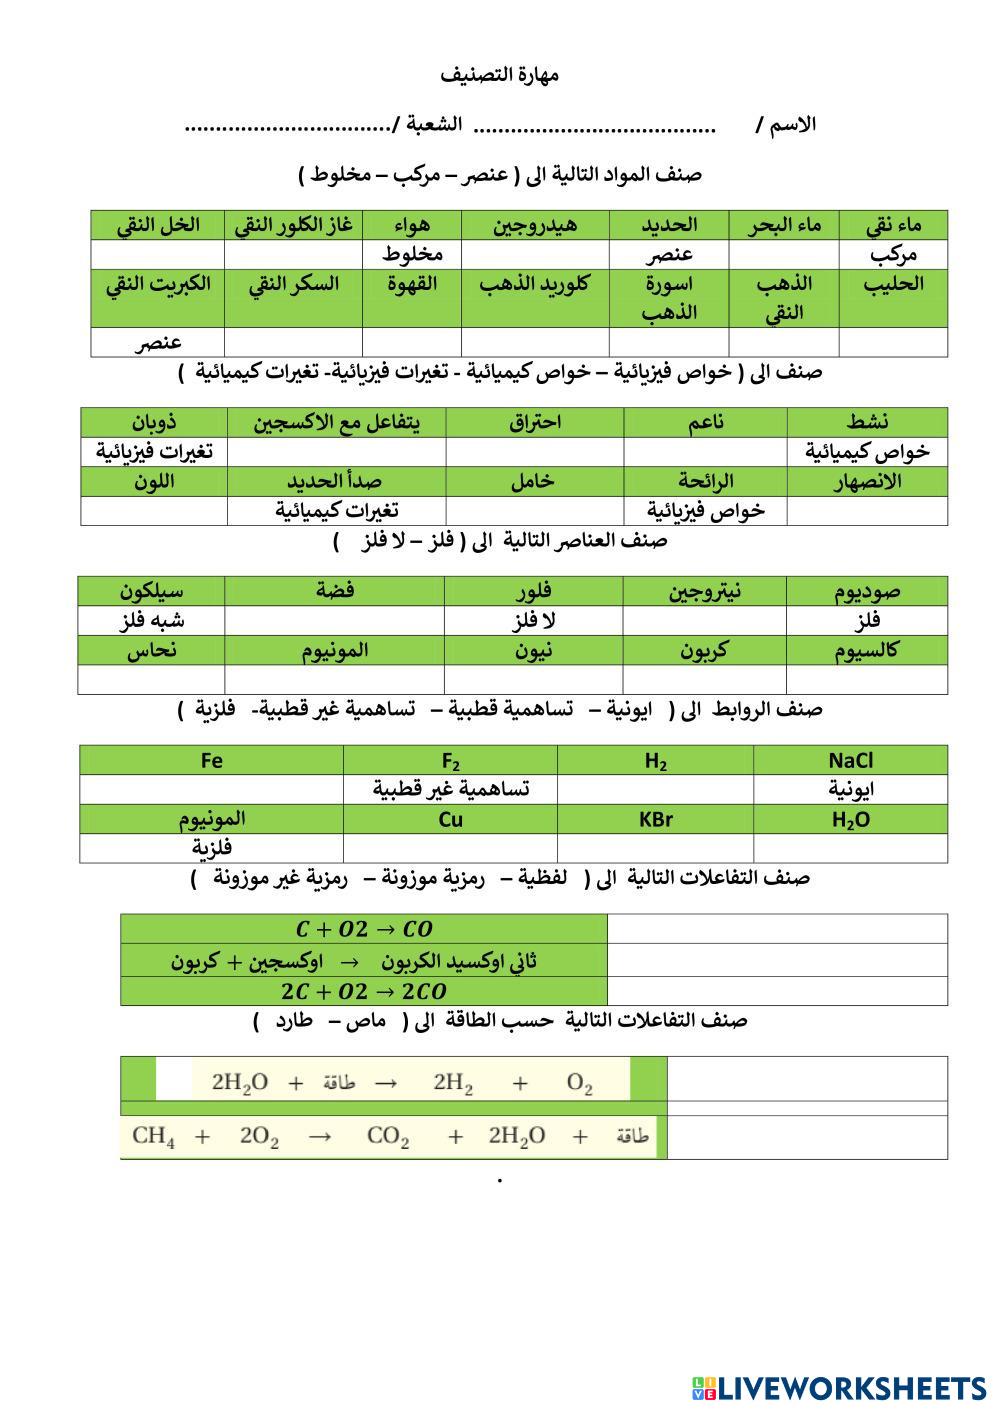 مهارة التصنيف
الاسم / ........................................ الشعبة /.................................
صنف المواد التالية الى ( عنصر – مركب – مخلوط )
ماء نقي ماء البحر الحديد هيدروجين هواء غاز الكلور النقي الخل النقي
مركب عنصر مخلوط
الحليب الذهب النقي اسورة الذهب كلوريد الذهب القهوة السكر النقي الكبريت النقي
عنصر
صنف الى ( خواص فيزيائية – خواص كيميائية - تغيرات فيزيائية- تغيرات كيميائية )
نشط ناعم احتراق يتفاعل مع الاكسجين ذوبان
خواص كيميائية تغيرات فيزيائية
الانصهار الرائحة خامل صدأ الحديد اللون
خواص فيزيائية تغيرات كيميائية
صنف العناصر التالية الى ( فلز – لا فلز )
صوديوم نيتروجين فلور فضة سيلكون
فلز لا فلز شبه فلز
كالسيوم كربون نيون المونيوم نحاس
صنف الروابط الى ( ايونية – تساهمية قطبية – تساهمية غير قطبية- فلزية )
NaCl H₂ F₂ Fe
ايونية تساهمية غير قطبية
H₂O KBr Cu المونيوم
فلزية
صنف التفاعلات التالية الى ( لفظية – رمزية موزونة – رمزية غير موزونة )
C + O2 → CO
ثاني اوكسيد الكربون → اوكسجين + كربون
2C + O2 → 2CO
صنف التفاعلات التالية حسب الطاقة الى ( ماص – طارد )
2H₂O + طاقة → 2H₂ + O₂
CH₄ + 2O₂ → CO₂ + 2H₂O + طاقة
.
LIVEWORKSHEETS